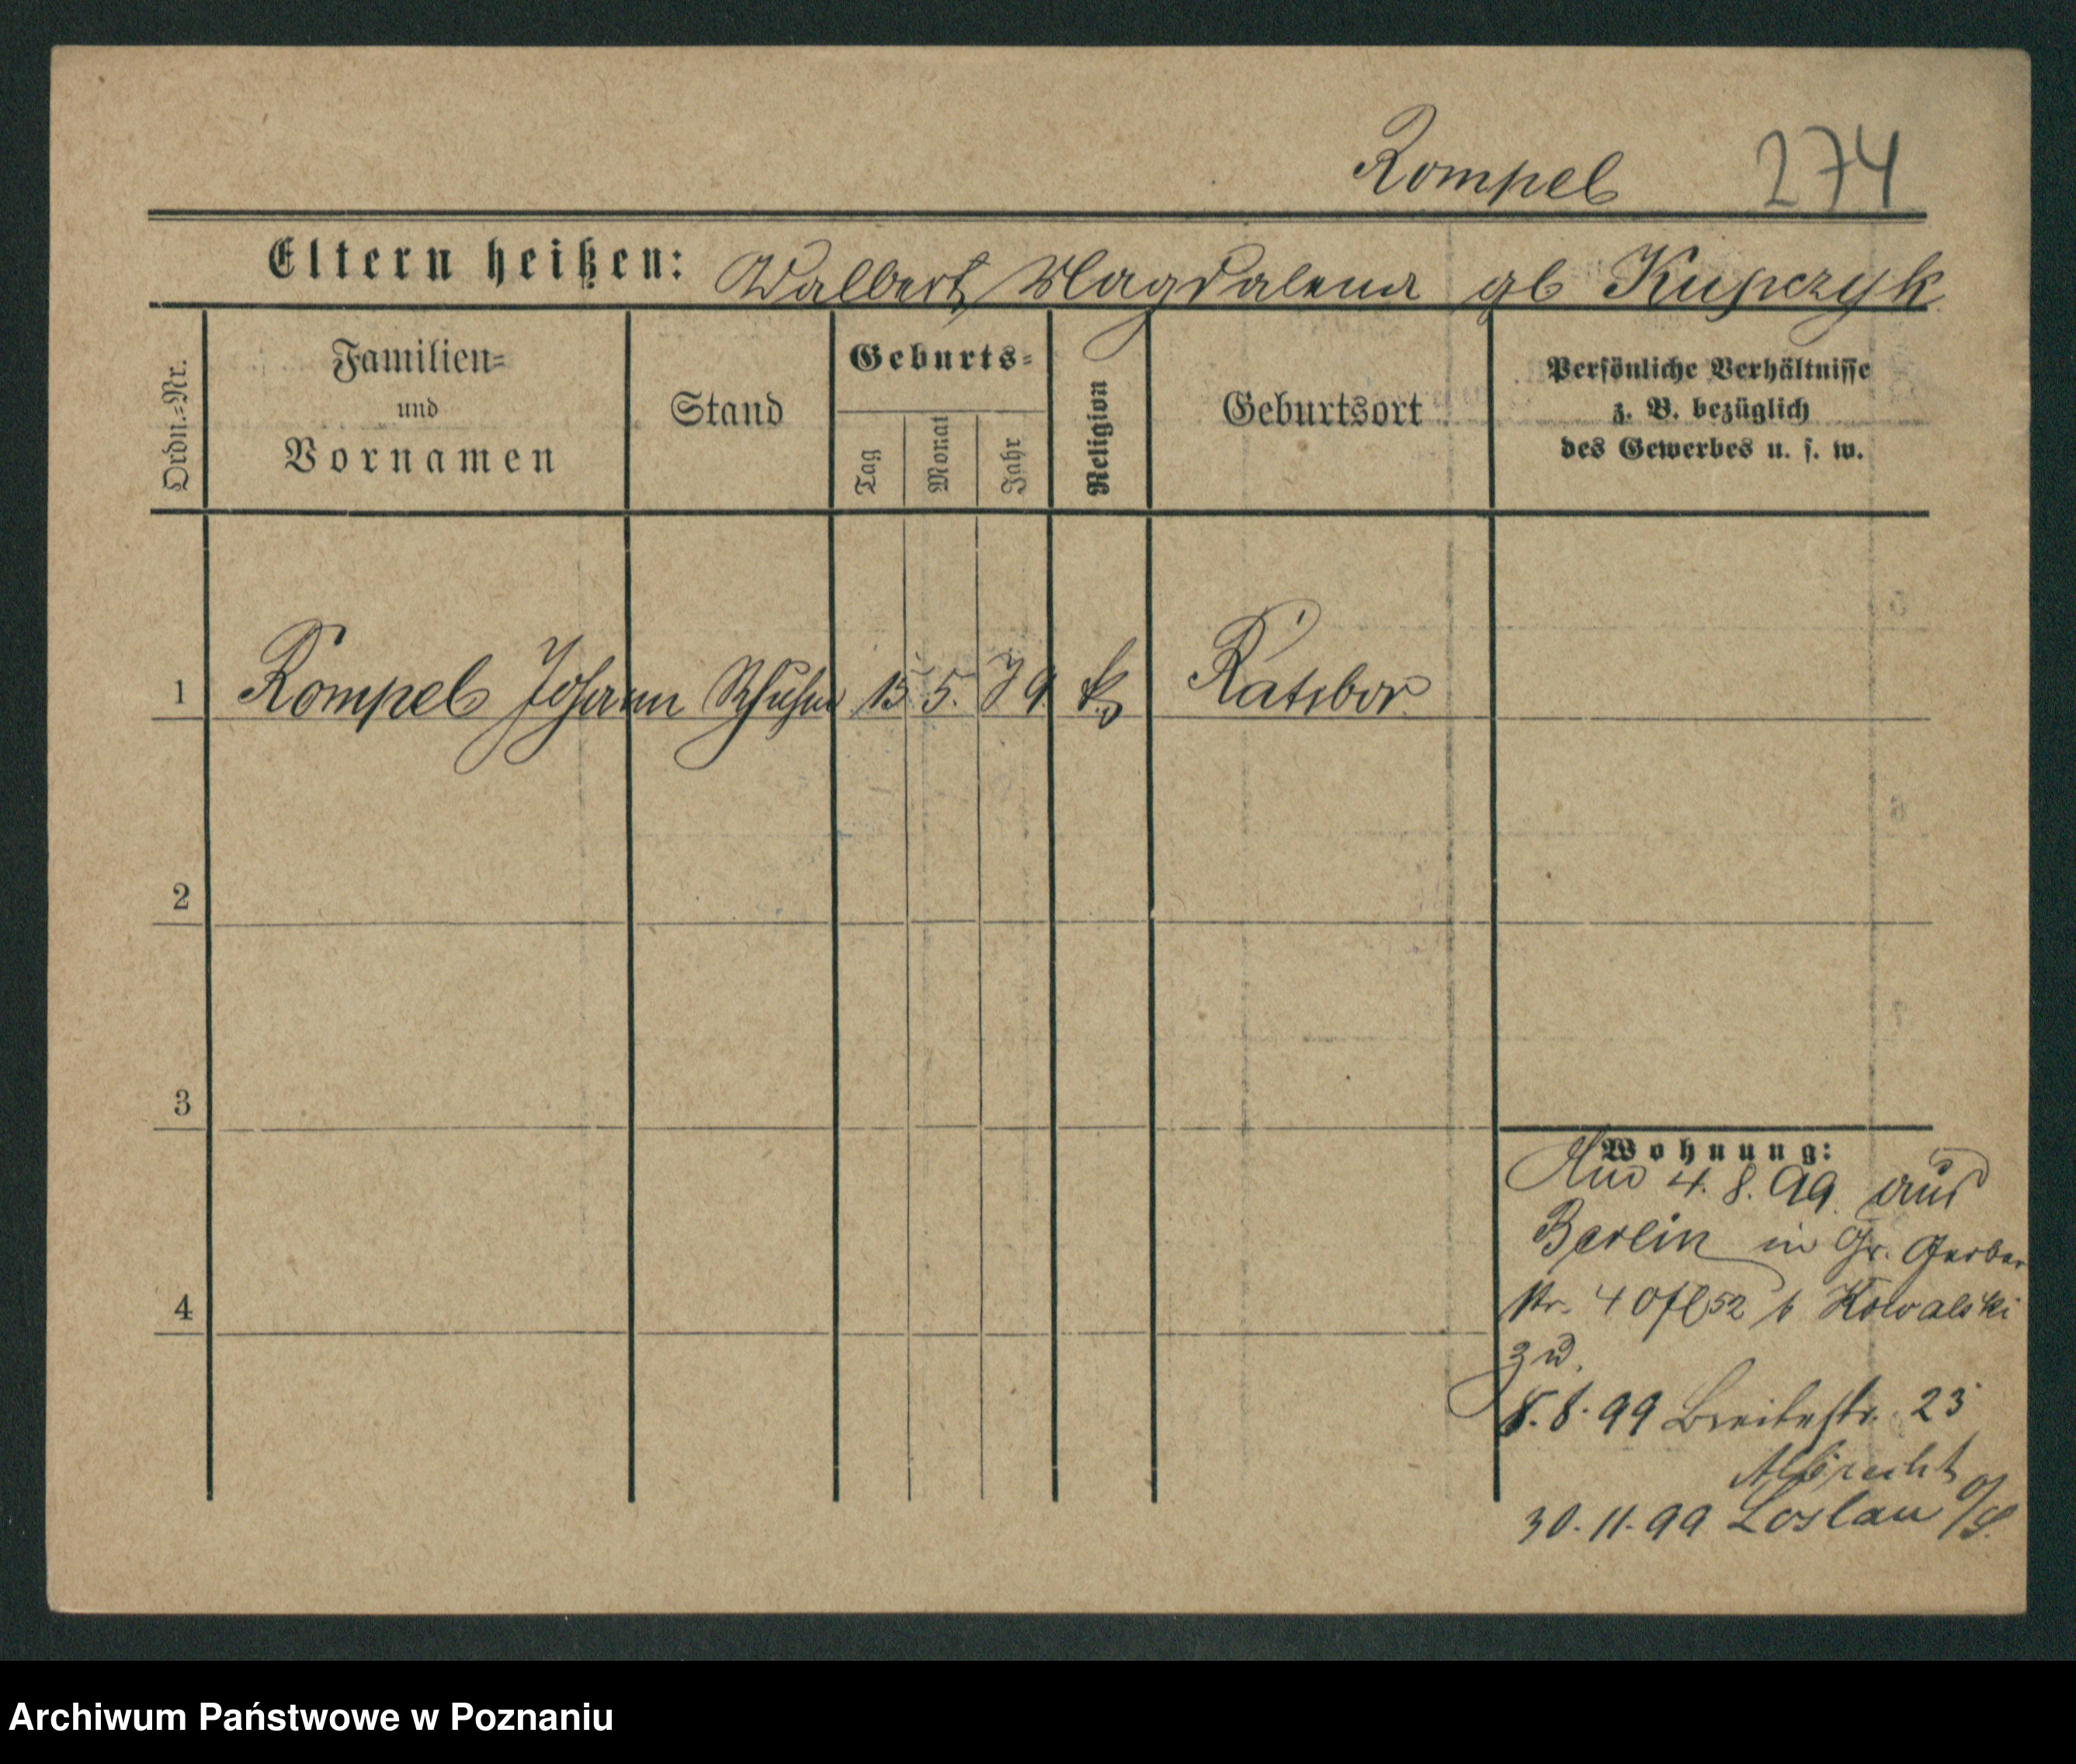 Rompel 274
Eltern heißen: Walbert Magdalena gb Kupczyk
Ordn.-Nr.
Familien-
und
Vornamen
Stand
Geburts-
Tag
Monat
Jahr
Religion
Geburtsort
Persönliche Verhältnisse
z. B. bezüglich
des Gewerbes u. s. w.
1 Rompel Johann 15 5. 79 k. Ratibor
2
3
4
Wohnung:
4. 8. 99. aus
Berlin in Gr. Gerber
str. 40 52 b Kowalski
zu.
8. 8. 99 Breitestr. 23
Albrecht
30. 11. 99 Loslau o/S.
Archiwum Państwowe w Poznaniu